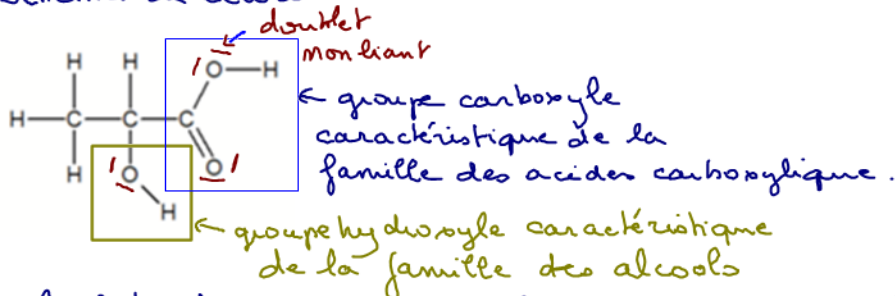 doublet
non liant
H H O—H
← groupe carboxyle
caractéristique de la
famille des acides carboxylique.
H—C—C—C
H O O
H
← groupe hydroxyle caractéristique
de la famille des alcools